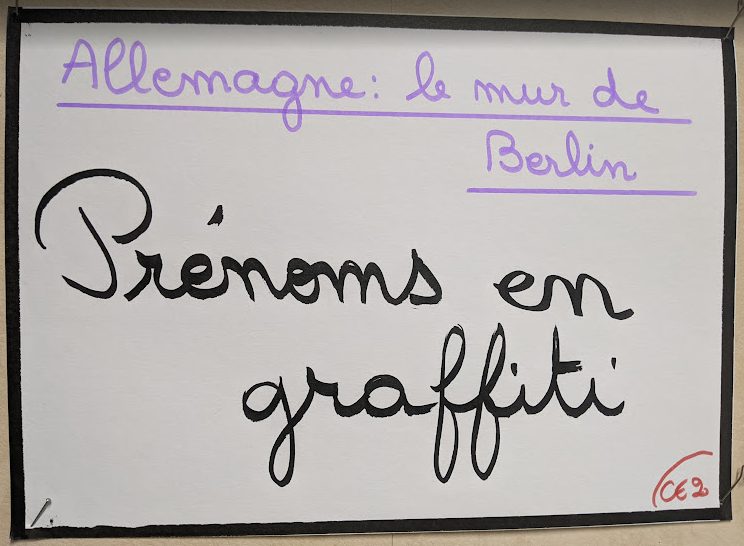 Allemagne: le mur de
Berlin
Prénoms en
graffiti
CE2